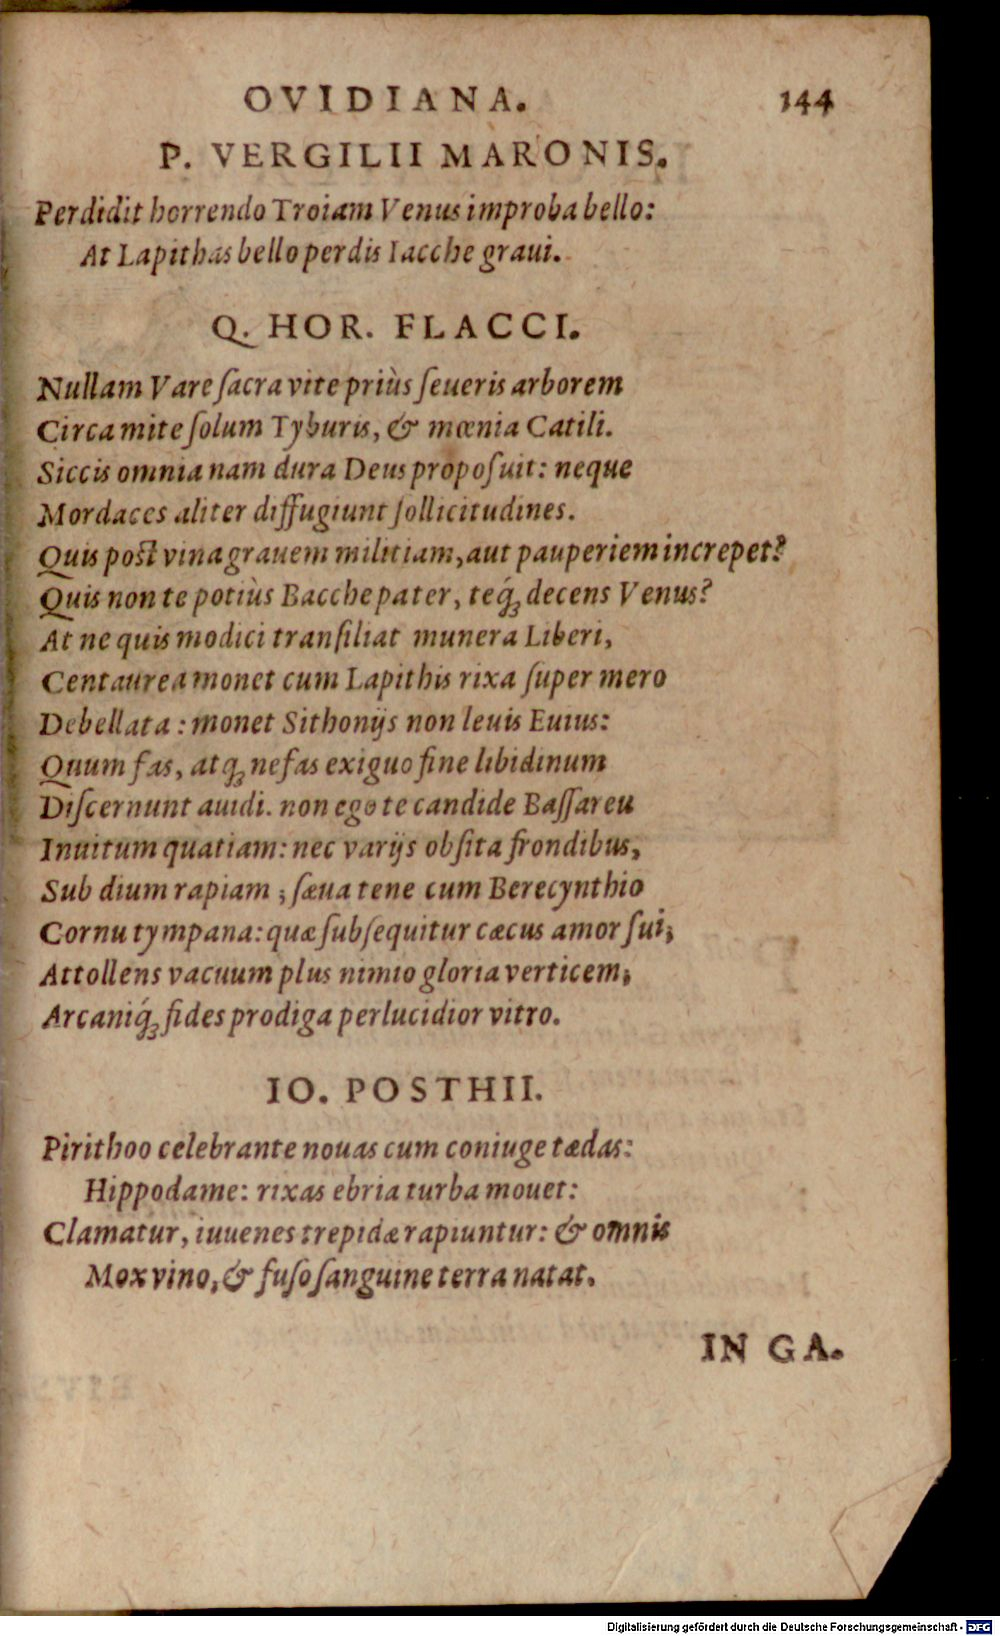 OVIDIANA. 144
P. VERGILII MARONIS.
Perdidit horrendo Troiam Venus improba bello:
At Lapithas bello perdis Iacche graui.
Q. HOR. FLACCI.
Nullam Vare ſacra vite priùs ſeueris arborem
Circa mite ſolum Tyburis, & mœnia Catili.
Siccis omnia nam dura Deus propoſuit: neque
Mordaces aliter diffugiunt ſollicitudines.
Quis poſt vina grauem militiam, aut pauperiem increpet?
Quis non te potiùs Bacche pater, teq́ꝫ decens Venus?
At ne quis modici tranſiliat munera Liberi,
Centaurea monet cum Lapithis rixa ſuper mero
Debellata: monet Sithonijs non leuis Euius:
Quum fas, atqꝫ nefas exiguo fine libidinum
Diſcernunt auidi. non ego te candide Baſſareu
Inuitum quatiam: nec varijs obſita frondibus,
Sub dium rapiam; ſæua tene cum Berecynthio
Cornu tympana: quæ ſubſequitur cæcus amor ſui;
Attollens vacuum plus nimio gloria verticem;
Arcaniq́ꝫ fides prodiga perlucidior vitro.
IO. POSTHII.
Pirithoo celebrante nouas cum coniuge tædas:
Hippodame: rixas ebria turba mouet:
Clamatur, iuuenes trepidæ rapiuntur: & omnis
Mox vino, & fuſo ſanguine terra natat.
IN GA.
Digitalisierung gefördert durch die Deutsche Forschungsgemeinschaft - DFG